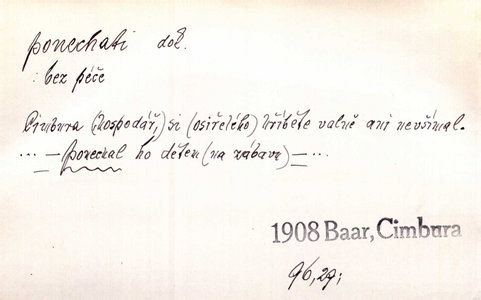 ponechati dok.
: bez péče
Cimbura (hospodář,) si (osiřelého) hříběte valně ani nevšímal.
... — ponechal ho dětem (na zábavu) — ...
1908 Baar, Cimbura
96,29;